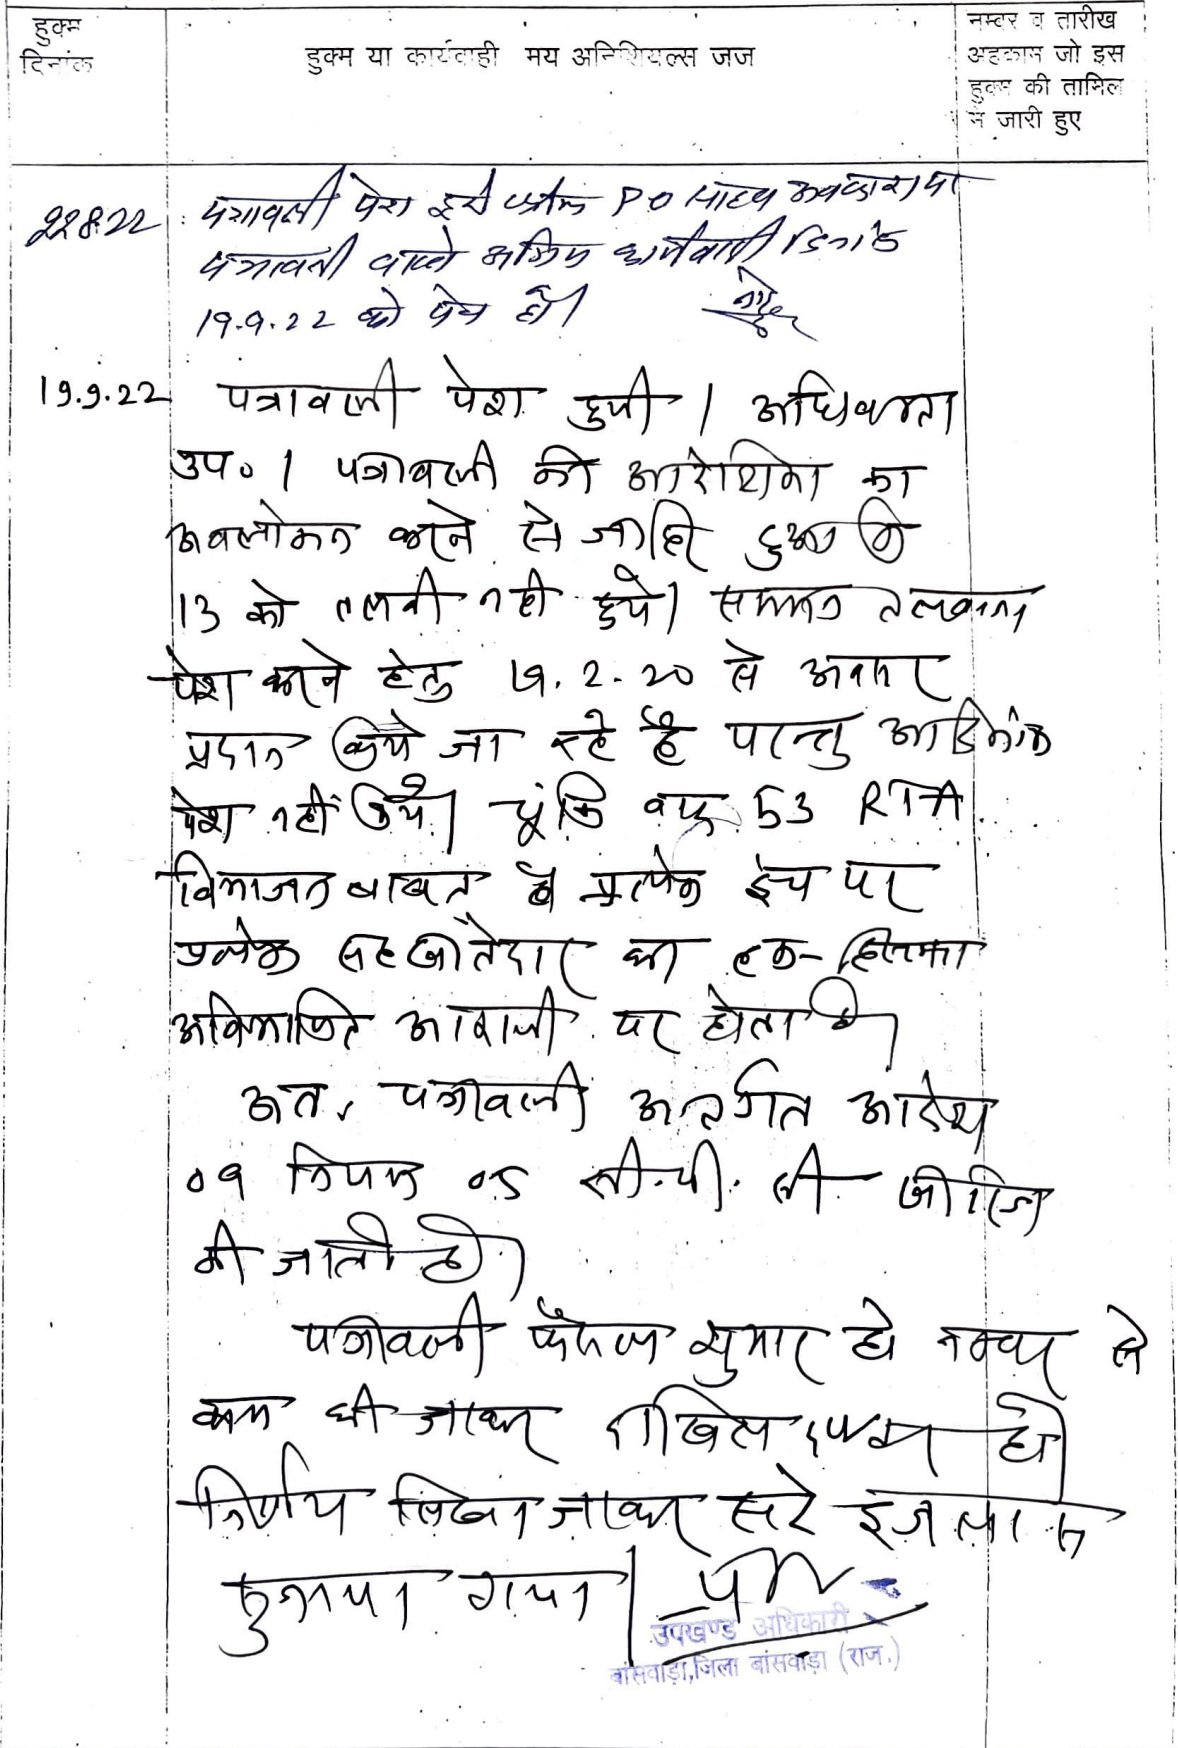 हुक्म
दिनांक
हुक्म या कार्यवाही मय अनिशियल्स जज
नम्बर व तारीख
अहकाम जो इस
हुक्म की तामिल
में जारी हुए
22.8.22 पत्रावली पेश हुई PO अवकाश पर
पत्रावली वास्ते अग्रिम कार्यवाही दिनांक
19.9.22 को पेश हो।
19.9.22 पत्रावली पेश हुयी। अधिवक्ता
उप०। पत्रावली की आदेशिका का
अवलोकन करने से जाहिर हुआ कि
13 को तलबी नहीं हुयी। सम्मन तलवाना
पेश करने हेतु 19.2.20 से अवसर
प्रदान किये जा रहे है परन्तु आदिनांक
पेश नहीं किये। चूंकि वाद 53 RTA
विभाजन बाबत है प्रत्येक इंच पर
प्रत्येक सहखातेदार का हक-हिस्सा
अविभाजित आराजी पर होता है।
अतः पत्रावली अन्तर्गत आदेश
09 नियम 05 सी.पी.सी खारिज
की जाती है।
पत्रावली फैसल शुमार हो नम्बर से
कम की जाकर दाखिल दफ्तर हो।
निर्णय लिखा जाकर सरे इजलास
सुनाया गया।
उपखण्ड अधिकारी
बांसवाड़ा,जिला बांसवाड़ा (राज.)